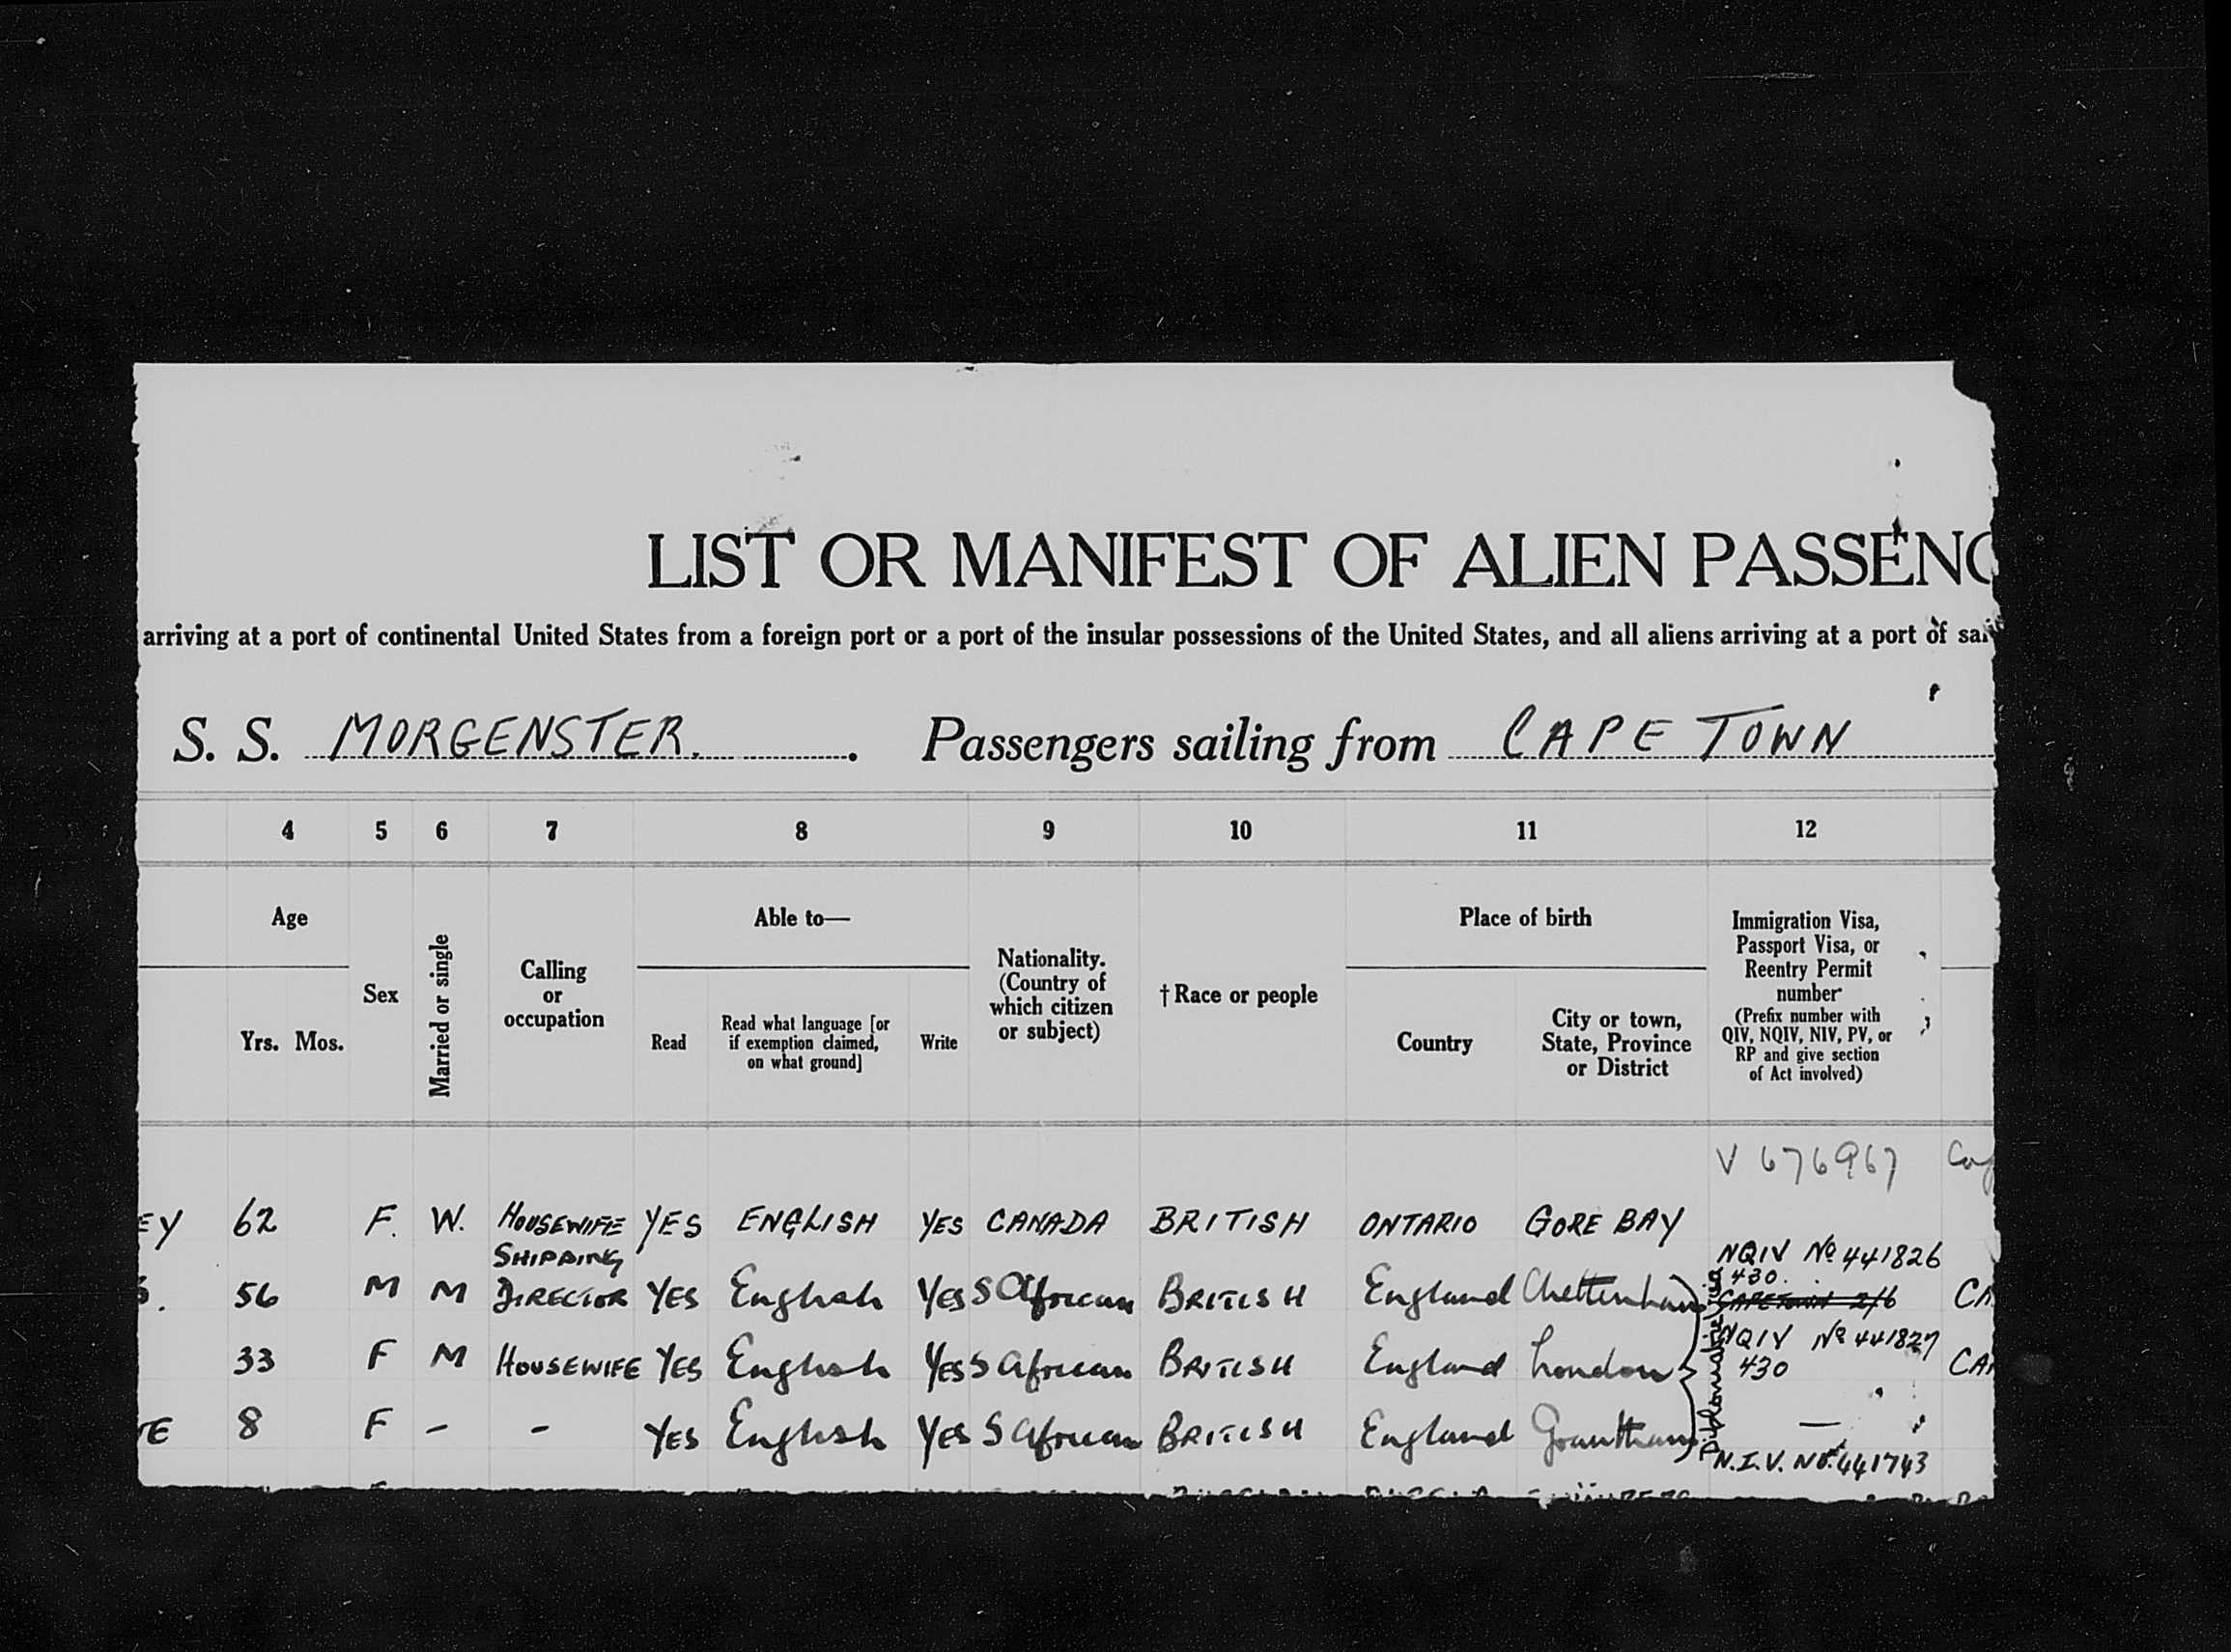 LIST OR MANIFEST OF ALIEN PASSENG
arriving at a port of continental United States from a foreign port or a port of the insular possessions of the United States, and all aliens arriving at a port of sai
S. S. MORGENSTER. Passengers sailing from CAPE TOWN
4 5 6 7 8 9 10 11 12
Age
Yrs. Mos.
Sex
Married or single
Calling
or
occupation
Able to—
Read
Read what language [or
if exemption claimed,
on what ground]
Write
Nationality.
(Country of
which citizen
or subject)
† Race or people
Place of birth
Country
City or town,
State, Province
or District
Immigration Visa,
Passport Visa, or
Reentry Permit
number
(Prefix number with
QIV, NQIV, NIV, PV, or
RP and give section
of Act involved)
V 676967
EY 62 F. W. HOUSEWIFE YES ENGLISH YES CANADA BRITISH ONTARIO GORE BAY
NQIV No 441826
430.
S. 56 M M SHIPPING
DIRECTOR YES English YES S African BRITISH England Cheltenham CAPETOWN 2/6 CA
NQIV No 441827
33 F M HOUSEWIFE YES English YES S African BRITISH England London 430 CA
TE 8 F - - YES English YES S African BRITISH England Grantham —
Diplomatic visa
N.I.V. No. 441743